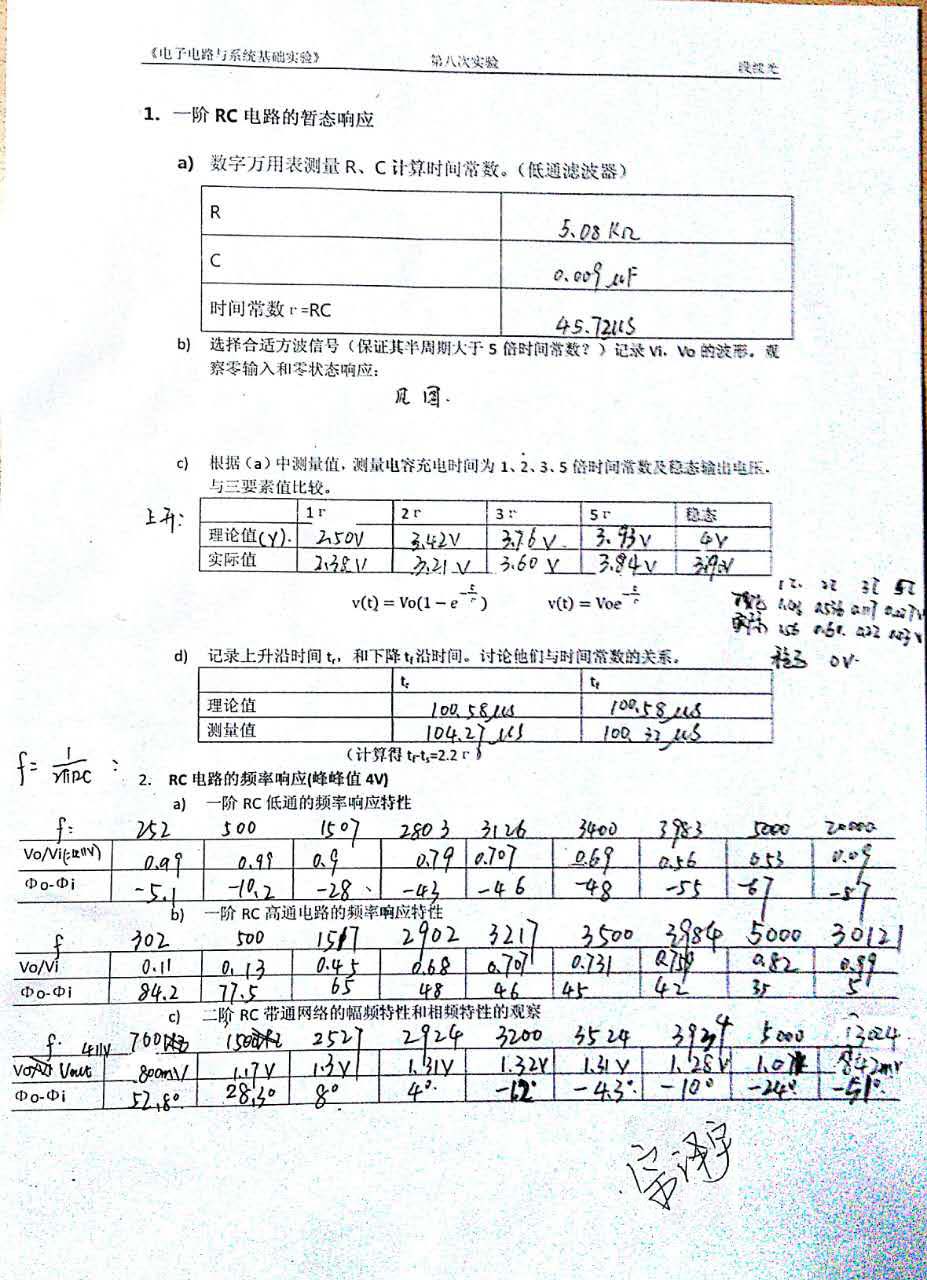 《电子电路与系统基础实验》 第八次实验
1. 一阶 RC 电路的暂态响应
a) 数字万用表测量 R、C 计算时间常数。（低通滤波器）
R 5.08 KΩ
C 0.009 μF
时间常数 τ=RC 45.72μS
b) 选择合适方波信号（保证其半周期大于 5 倍时间常数？）记录 Vi、Vo 的波形。观
察零输入和零状态响应：
见图.
c) 根据（a）中测量值，测量电容充电时间为 1、2、3、5 倍时间常数及稳态输出电压，
与三要素值比较。
上升:
1τ 2τ 3τ 5τ 稳态
理论值(V). 2.50V 3.42V 3.76V 3.93V 4V
实际值 2.38V 3.21V 3.60V 3.84V 3.90V
v(t) = Vo(1 − e^(−t/τ)) v(t) = Voe^(−t/τ)
1τ 2τ 3τ 5τ
稳态 0V.
d) 记录上升沿时间 tr，和下降 tf 沿时间。讨论他们与时间常数的关系。
tr tf
理论值 100.58μS 100.58μS
测量值 104.27μS 100.32μS
（计算得 tf-ts=2.2τ）
f= 1/2πRC :
2. RC 电路的频率响应(峰峰值 4V)
a) 一阶 RC 低通的频率响应特性
f: 252 500 1507 2803 3126 3400 3983 5000 20000
Vo/Vi 0.99 0.99 0.9 0.79 0.707 0.69 0.56 0.53 0.09
Φo-Φi -5.1 -10.2 -28 -43 -46 -48 -55 -67 -87
b) 一阶 RC 高通电路的频率响应特性
f 302 500 1517 2902 3217 3500 3984 5000 30121
Vo/Vi 0.11 0.13 0.45 0.68 0.707 0.731 0.759 0.82 0.99
Φo-Φi 84.2 77.5 65 48 46 45 42 35 5
c) 二阶 RC 带通网络的幅频特性和相频特性的观察
f. 411V 760 1500 2527 2924 3200 3524 3934 5000 13024
Vout 800mV 1.17V 1.3V 1.31V 1.32V 1.31V 1.28V 1.07V 842mV
Φo-Φi 52.8° 28.3° 8° 4° -1.2° -4.3° -10° -24° -51°